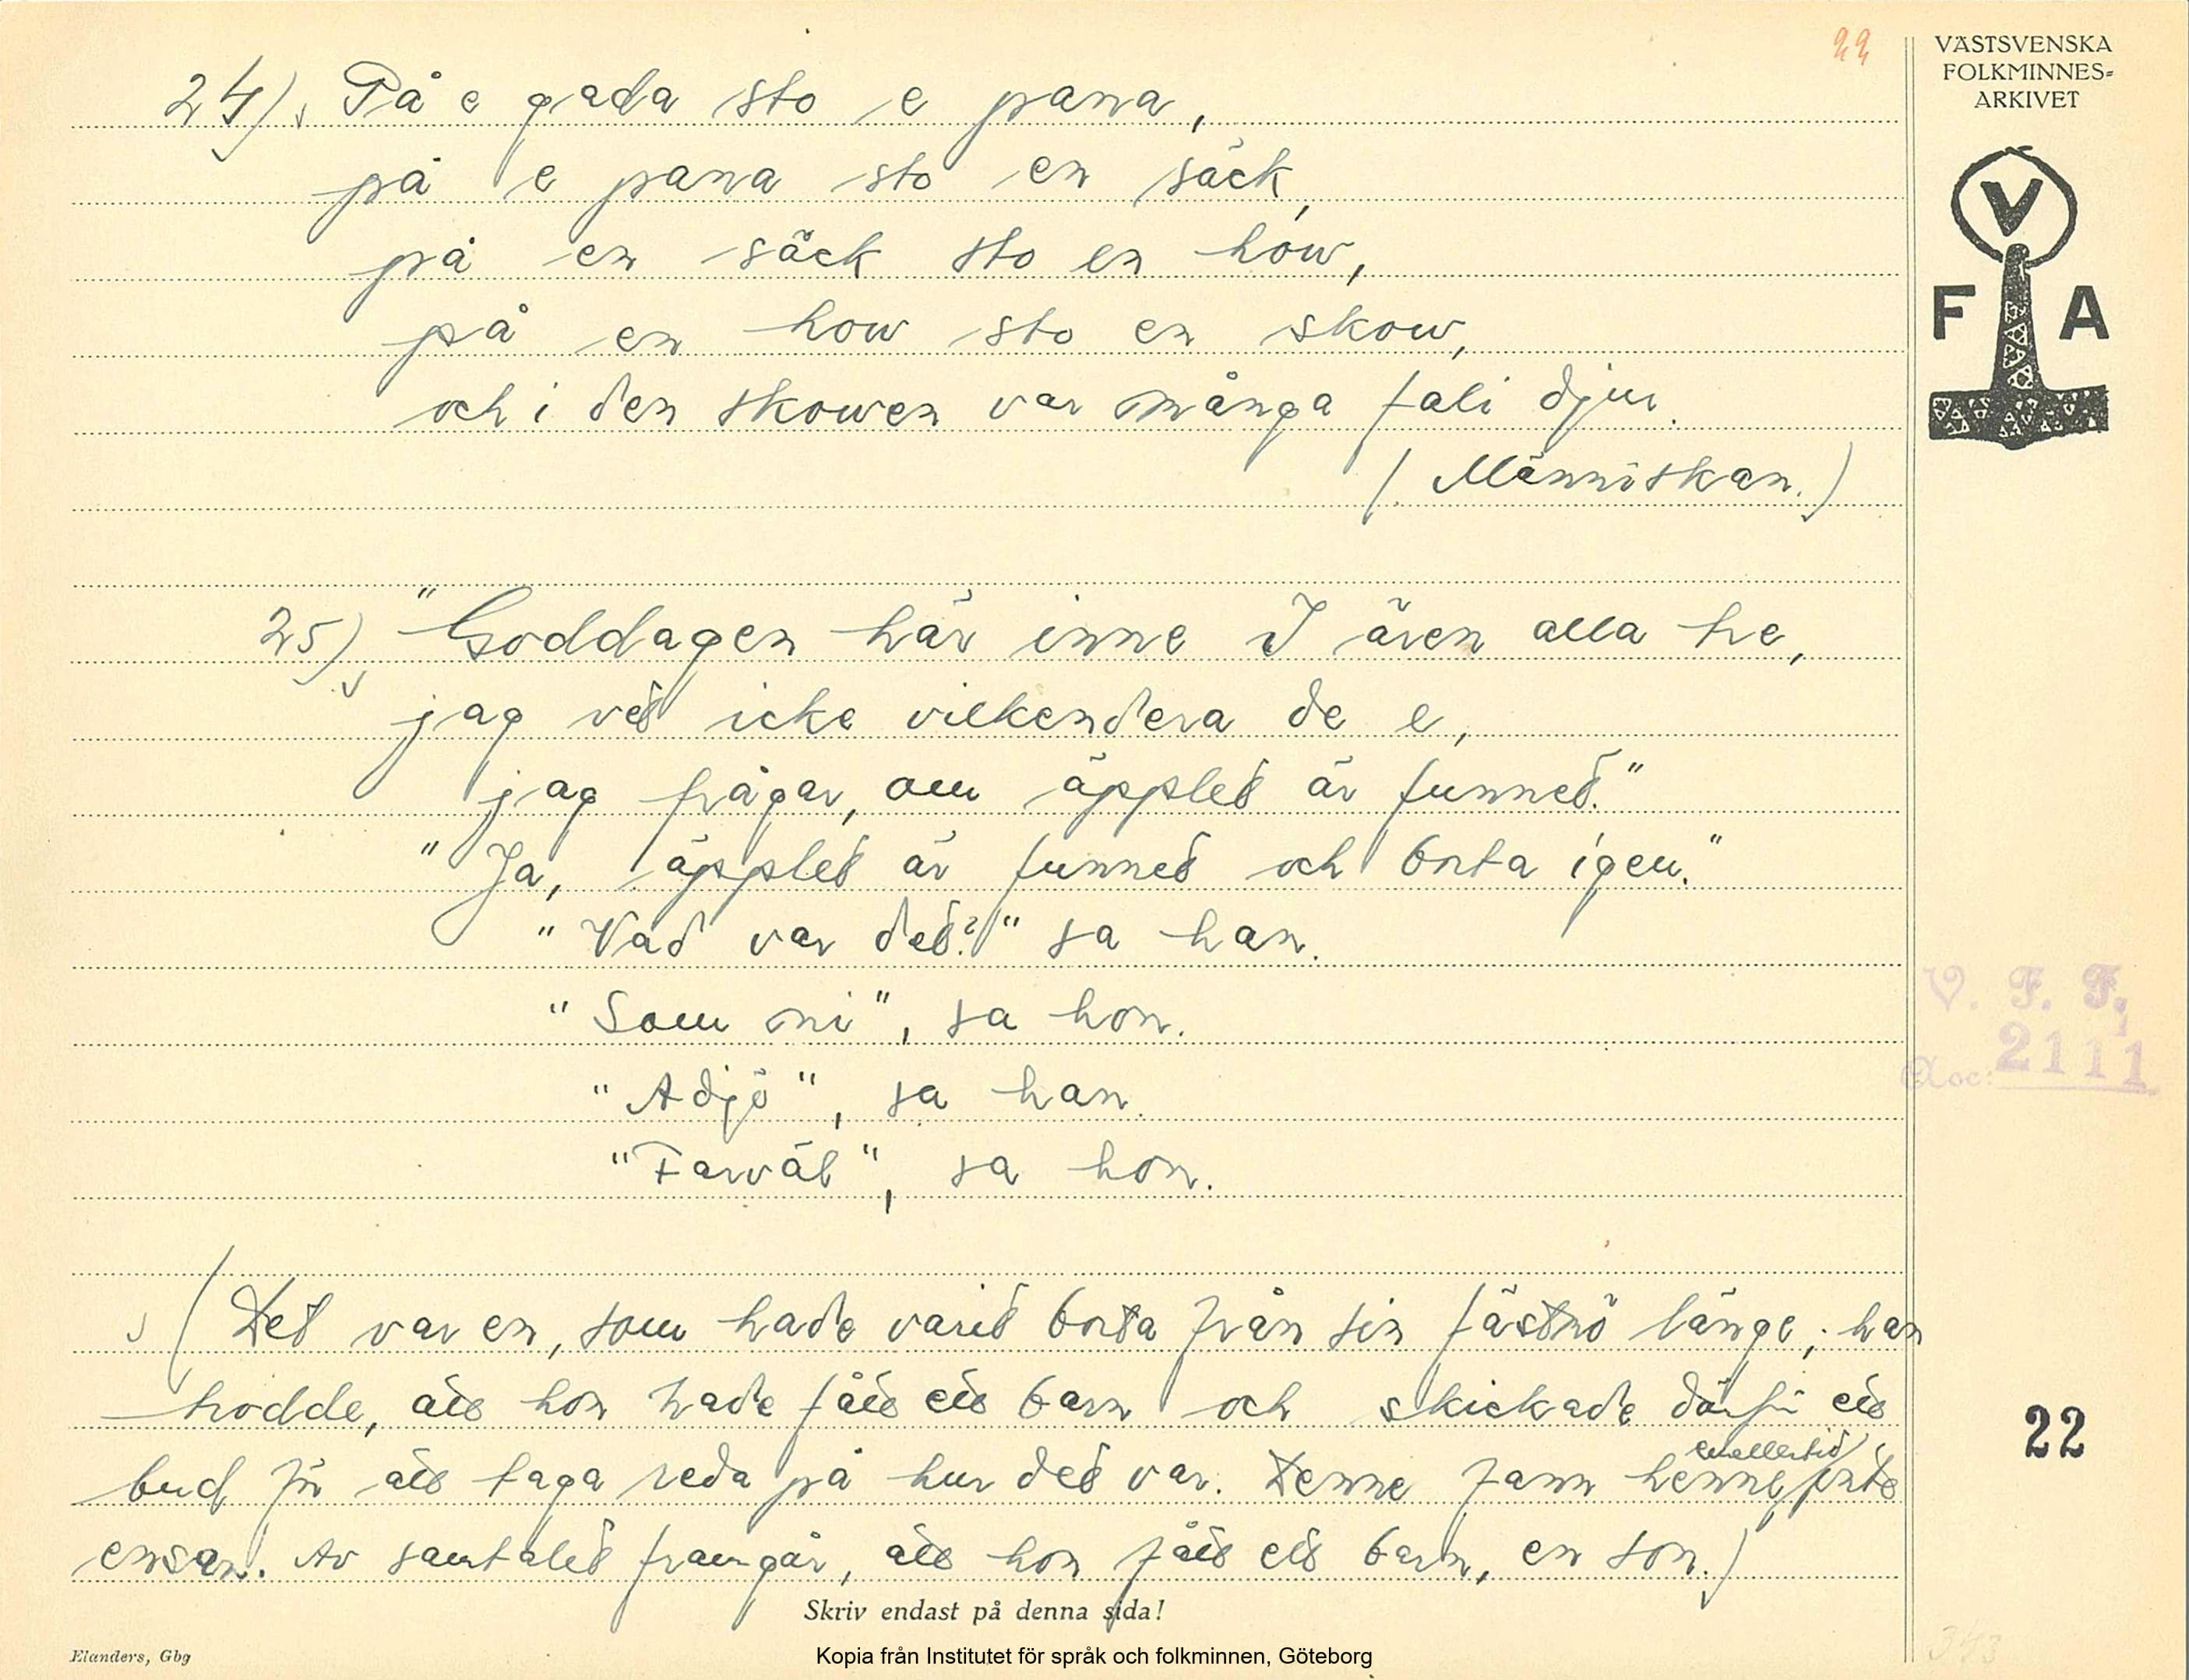 22
VÄSTSVENSKA
FOLKMINNES=
ARKIVET
V
F A
24). På e gada sto e pana,
på e pana sto en säck,
på en säck sto en how,
på en how sto en skow,
och i den skowen var många fali djur.
(Människan.)
25) "Goddagen här inne I ären alla tre,
jag vet icke vilkendera de e,
jag frågar, om äpplet är funnet."
"Ja, äpplet är funnet och borta igen."
"Vad var det?" sa han.
"Som ni", sa hon.
"Adjö", sa han.
"Farväl", sa hon.
V. F. F.
Acc: 2111
(Det var en, som hade varit borta från sin fästmö länge; han
trodde, att hon hade fått ett barn och skickade därför ett
bud för att taga reda på hur det var. Denne fann henne emellertid inte
ensam. Av samtalet framgår, att hon fått ett barn, en son.)
22
Skriv endast på denna sida!
Elanders, Gbg
Kopia från Institutet för språk och folkminnen, Göteborg